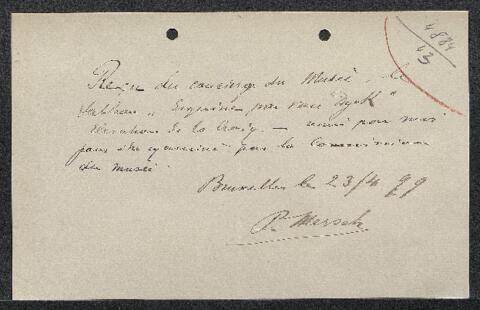 4884
63
Reçu du concierge du Musée, le
tableau „ Esquisse par Van Dyck"
de la Croix. — remis par moi
pour être examiné par la Commission
du musée.
Bruxelles le 23/4 99
P. Mersch